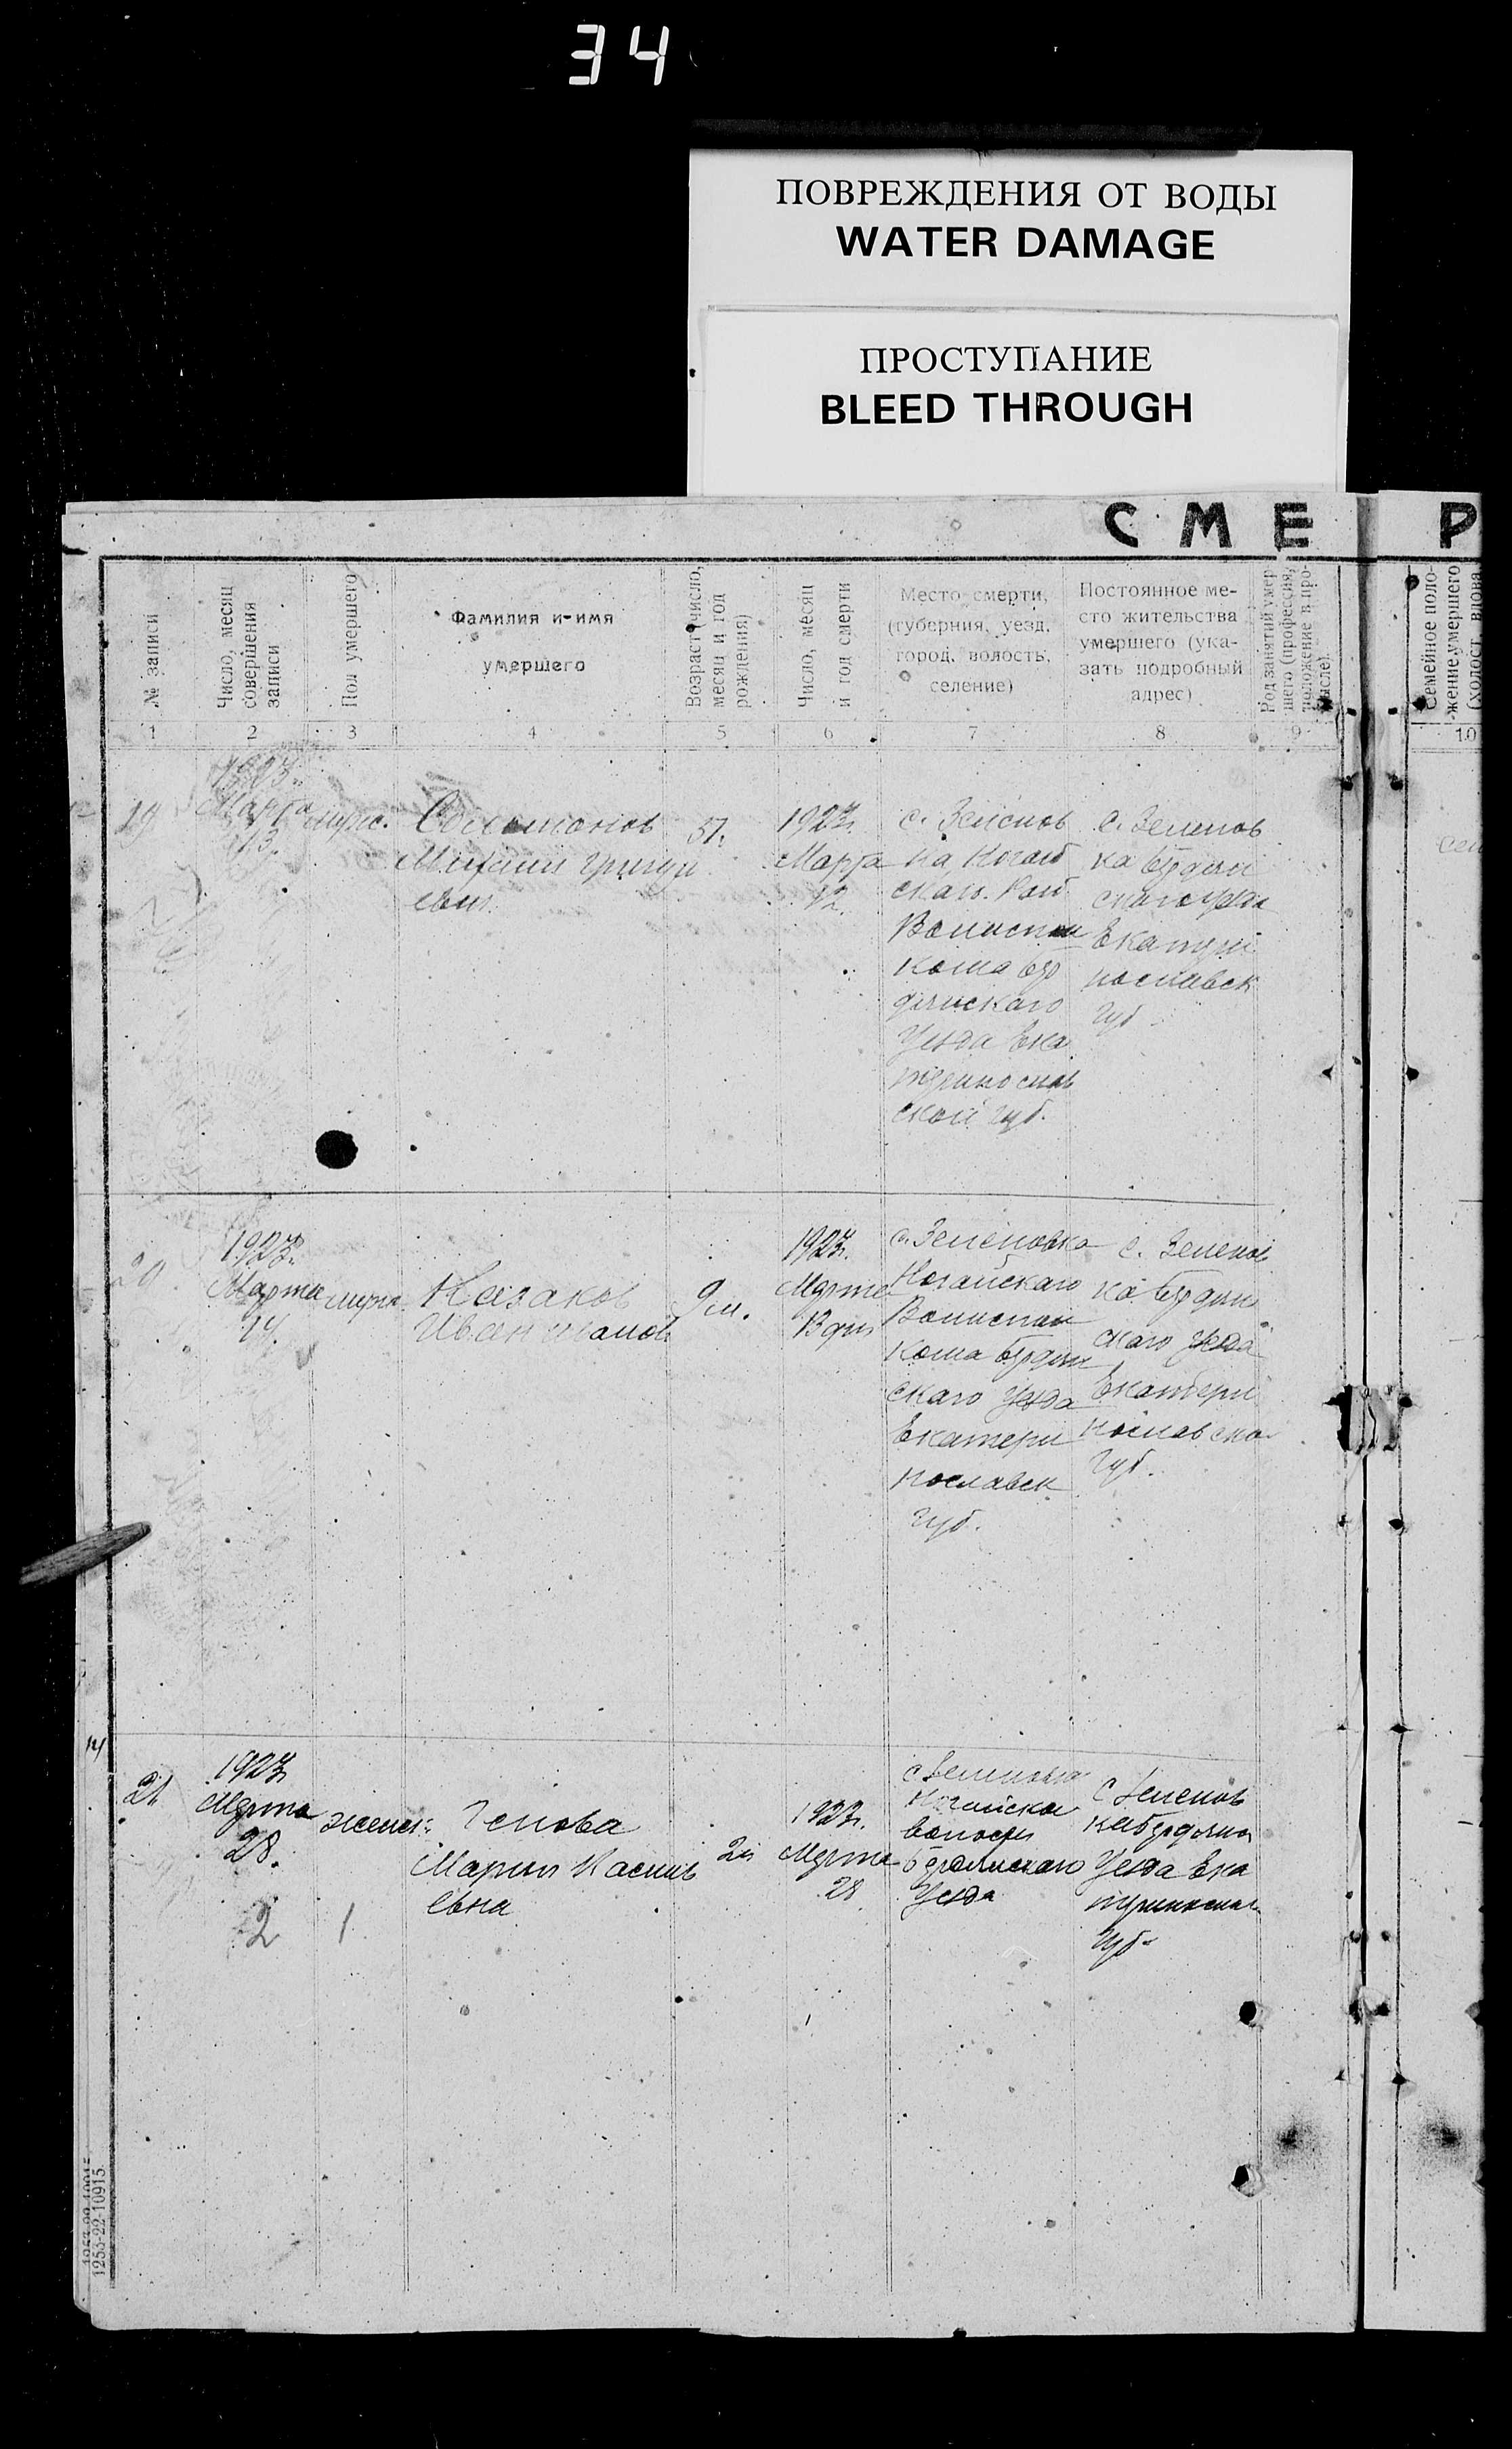 34
ПОВРЕЖДЕНИЯ ОТ ВОДЫ
WATER DAMAGE
ПРОСТУПАНИЕ
BLEED THROUGH
СМЕ Р
№ записи
Число, месяц
совершения
записи
Пол умершего
Фамилия и имя
умершего
Возраст (число,
месяц и год
рождения)
Число, месяц
и год смерти
Место смерти,
(губерния, уезд,
город, волость,
селение)
Постоянное ме-
сто жительства
умершего (ука-
зать подробный
адрес)
Род занятий умер-
шего (профессия,
положение в про-
мысле).
Семейное поло-
жение умершего
(холост, вдова,
1 2 3 4 5 6 7 8 9 10
19
1923
Марта
13.
мужс.
Соломонов
евич.
51.
1923г.
Марта
12.
с. Зеленов
ка Ногай
скаго
кома Бер
дянскаго
Уезда Ека
теринослав
ской губ.
с. Зеленов
ка Бердян
скаго Уезда
Екатери
нославск
Губ
20
1923г.
Марта
14.
мужс
Казаков
Иван
9 м.
1923г.
Марта
13 дня
с. Зеленовка
Ногайскаго
Волиспол
кома Бердян
скаго Уезда
Екатери
нославск
Губ.
с. Зеленов
ка Бердян
скаго Уезда
Екатери
нославско
Губ.
14
21
1923г
Марта
28.
женск.
Генова
Мария Касиль
евна
1923г.
Марта
28
с Зеленовка
Ногайска
волости
Бердянскаго
Уезда
с Зеленов
ка Бердянск
Уезда Ека
теринослав
Губ.
2 1
1253-22-10915.